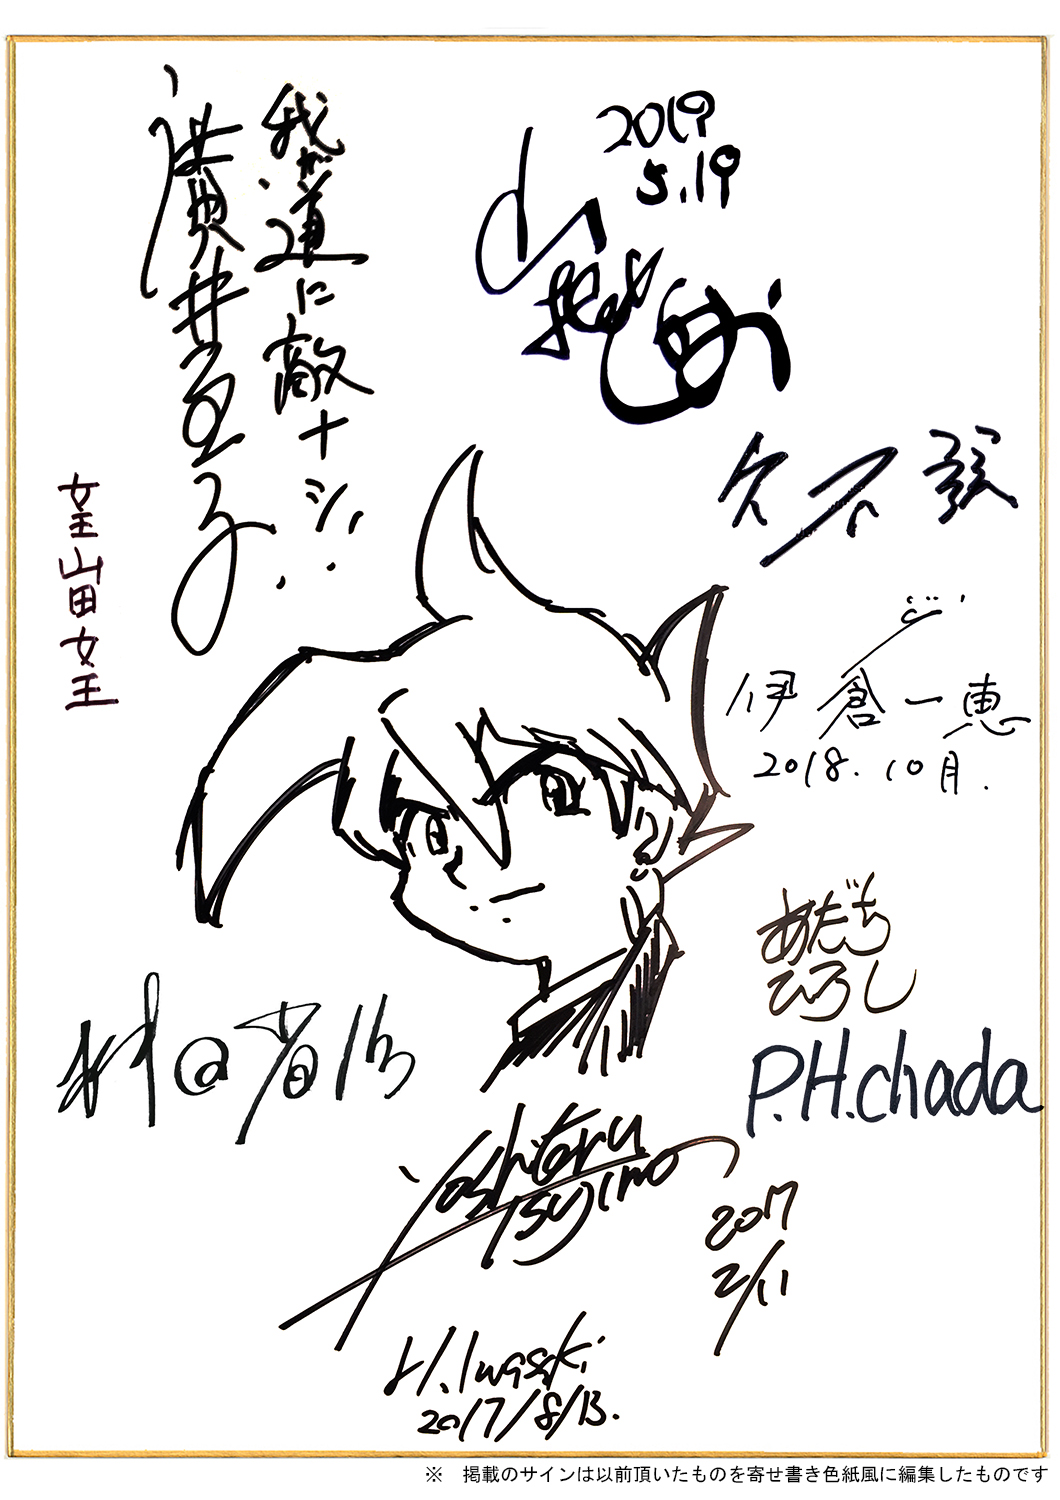 我が道に敵ナシ!
廣井王子
2019
5.19
久石譲
伊倉一恵
2018.10月.
あだち
ひろし
P.H.chada
Yoshiteru
Tsujino
2017
2/11
H.Iwasaki
2017/8/13.
※ 掲載のサインは以前頂いたものを寄せ書き色紙風に編集したものです